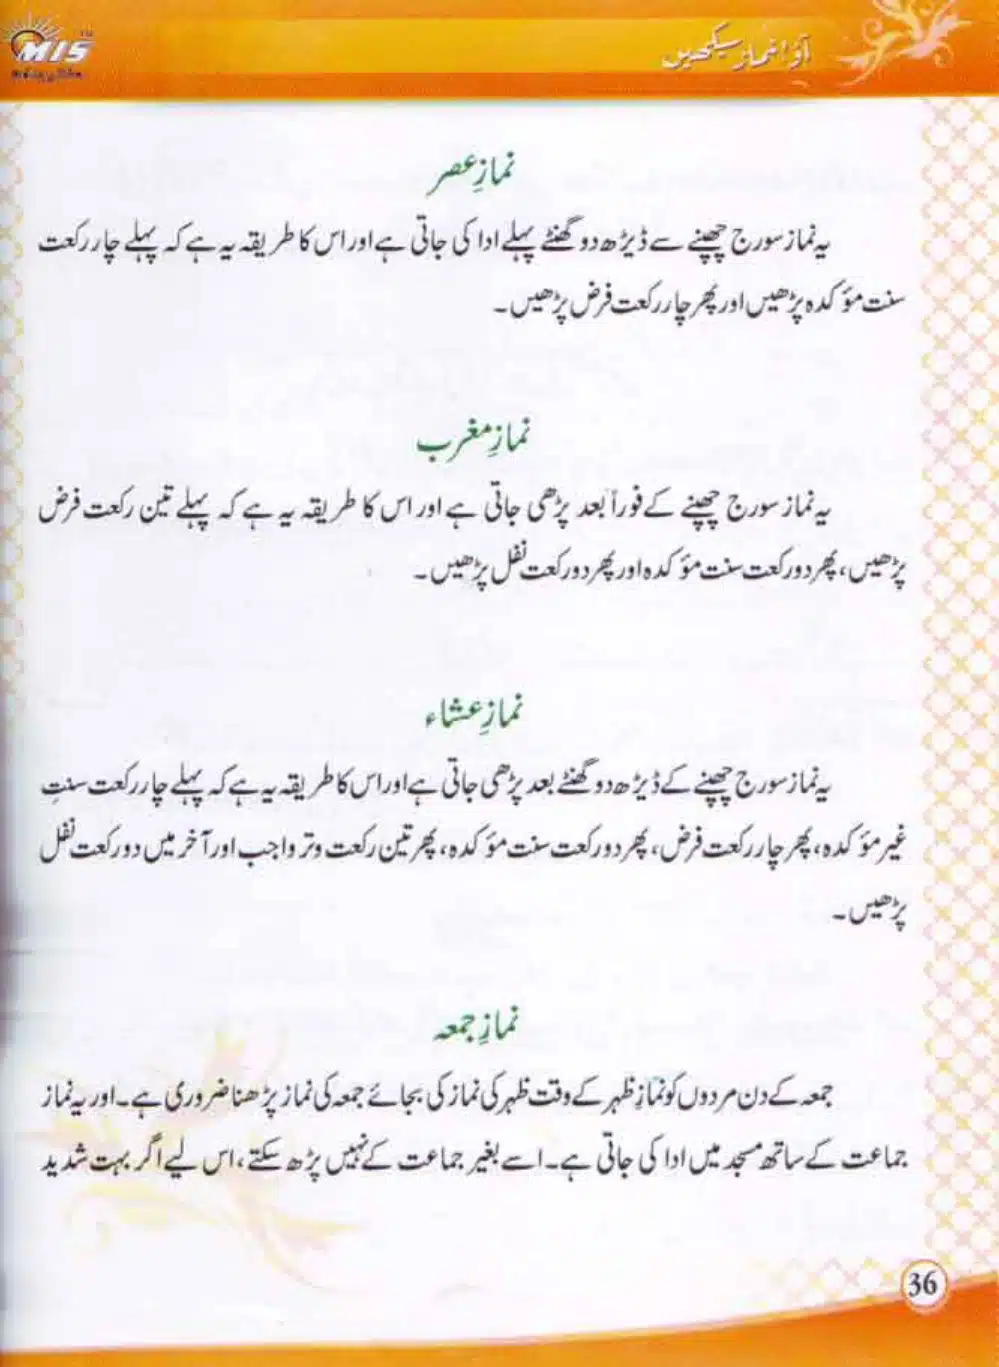 MIS
آؤ! نماز سیکھیں
نمازِ عصر
یہ نماز سورج چھپنے سے ڈیڑھ دو گھنٹے پہلے ادا کی جاتی ہے اور اس کا طریقہ یہ ہے کہ پہلے چار رکعت
سنت مؤکدہ پڑھیں اور پھر چار رکعت فرض پڑھیں۔
نمازِ مغرب
یہ نماز سورج چھپنے کے فوراً بعد پڑھی جاتی ہے اور اس کا طریقہ یہ ہے کہ پہلے تین رکعت فرض
پڑھیں، پھر دو رکعت سنت مؤکدہ اور پھر دو رکعت نفل پڑھیں۔
نمازِ عشاء
یہ نماز سورج چھپنے کے ڈیڑھ دو گھنٹے بعد پڑھی جاتی ہے اور اس کا طریقہ یہ ہے کہ پہلے چار رکعت سنتِ
غیر مؤکدہ، پھر چار رکعت فرض، پھر دو رکعت سنت مؤکدہ، پھر تین رکعت وتر واجب اور آخر میں دو رکعت نفل
پڑھیں۔
نمازِ جمعہ
جمعہ کے دن مردوں کو نمازِ ظہر کے وقت ظہر کی نماز کی بجائے جمعہ کی نماز پڑھنا ضروری ہے۔ اور یہ نماز
جماعت کے ساتھ مسجد میں ادا کی جاتی ہے۔ اسے بغیر جماعت کے نہیں پڑھ سکتے، اس لیے اگر بہت شدید
36